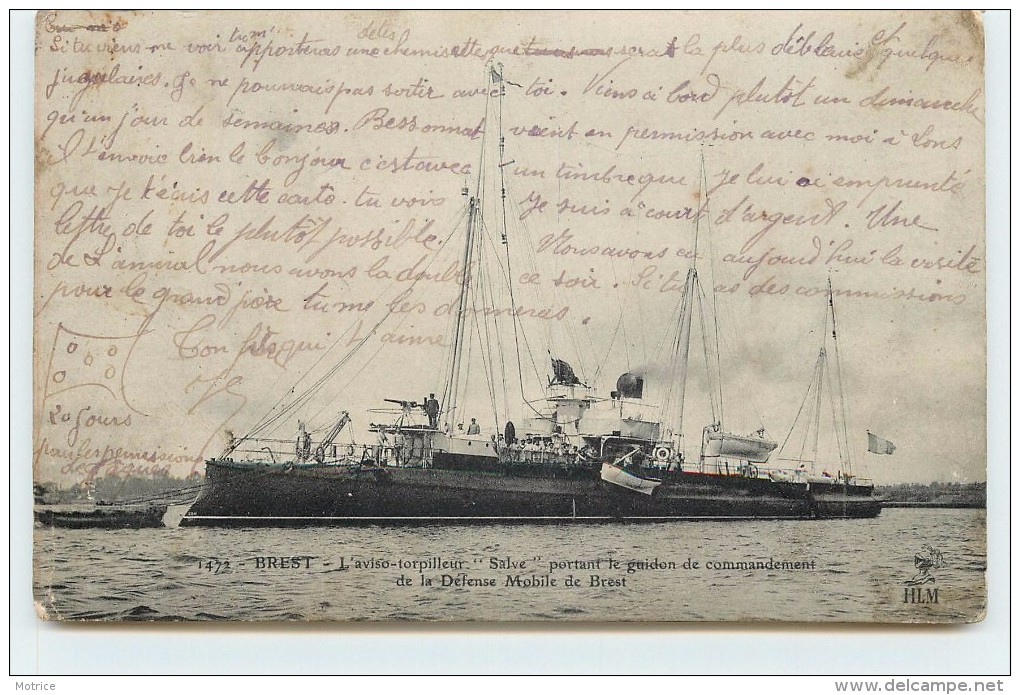 Si tu viens me voir tu m' apporteras une chemisette des que sera la plus déblaie et quelque
jugulaires. Je ne pouvais pas sortir avec toi. Viens à bord plutôt un demanche
qu'un jour de semaines. Bessonnat vient en permission avec moi à Lons
il t'envoie bien le bonjour c'est avec un timbre que je lui ai emprunté
que je t'écris cette carte. tu vois je suis à court d'argent. Une
lettre de toi le plutôt possible. Nous avons eu aujourd'hui la visite
de L'amiral nous avons la double ce soir. Si tu as des commissions
pour le grand'père tu me les donneras.
Ton fils qui t'aime
20 jours
pour les permissions
de Pâques
1472 - BREST - L'aviso-torpilleur "Salve" portant le guidon de commandement
de la Défense Mobile de Brest
HLM
Matrice
www.delcampe.net